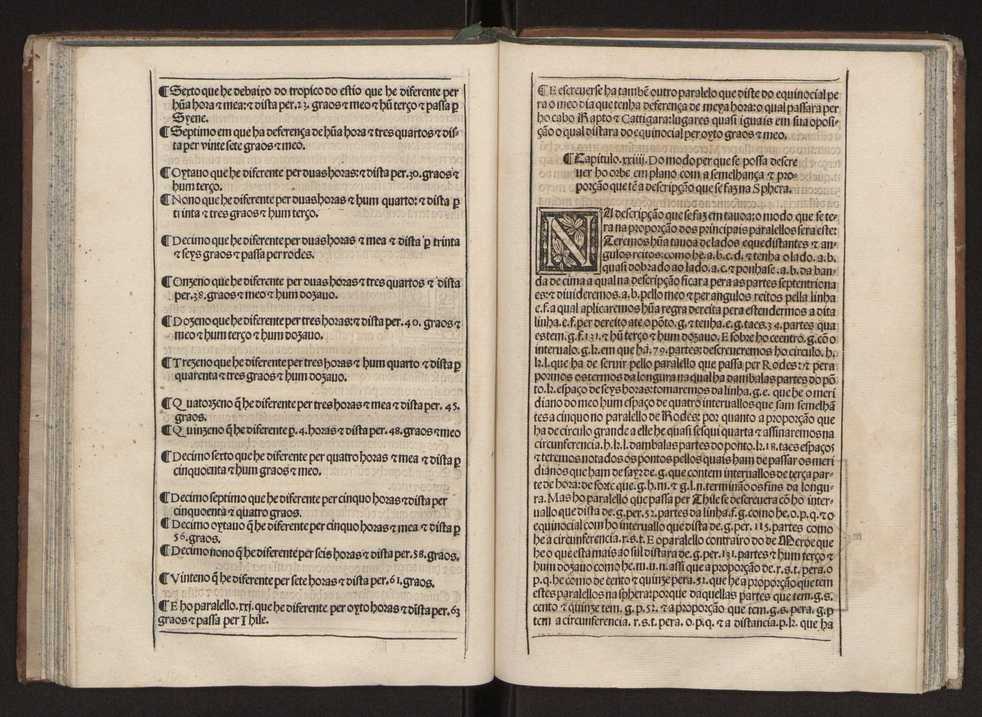 ¶ Sexto que he debaixo do tropico do estio que he diferente per
hũa hora ⁊ mea: ⁊ dista per .23. graos ⁊ meo ⁊ hũ terço ⁊ passa ꝑ
Syene.
¶ Septimo em que ha deferença de hũa hora ⁊ tres quartos ⁊ dis-
ta per vinte sete graos ⁊ meo.
¶ Oytauo que he diferente per duas horas: ⁊ dista per .30. graos ⁊
hum terço.
¶ Nono que he diferente per duas horas ⁊ hum quarto: ⁊ dista ꝑ
trinta ⁊ tres graos ⁊ hum terço.
¶ Decimo que he diferente per duas horas ⁊ mea ⁊ dista ꝑ trinta
⁊ seys graos ⁊ passa per rodes.
¶ Onzeno que he diferente per duas horas ⁊ tres quartos ⁊ dista
per .38. graos ⁊ meo ⁊ hum dozauo.
¶ Dozeno que he diferente per tres horas: ⁊ dista per .40. graos ⁊
meo ⁊ hum terço ⁊ hum dozauo.
¶ Trezeno que he diferente per tres horas ⁊ hum quarto ⁊ dista ꝑ
quarenta ⁊ tres graos ⁊ hum dozauo.
¶ Quatorzeno q̃ he diferente per tres horas ⁊ mea ⁊ dista per. 45.
graos.
¶ Quinzeno q̃ he diferente ꝑ. 4. horas ⁊ dista per .48. graos ⁊ meo
¶ Decimo serto que he diferente per quatro horas ⁊ mea ⁊ dista ꝑ
cinquoenta ⁊ hum graos ⁊ meo.
¶ Decimo septimo que he diferente per cinquo horas ⁊ dista per
cinquoenta ⁊ quatro graos.
¶ Decimo oytauo q̃ he diferente per cinquo horas ⁊ mea ⁊ dista ꝑ
56. graos.
¶ Decimo nono q̃ he diferente per seis horas ⁊ dista per .58. graos.
¶ Vinteno q̃ he diferente per sete horas ⁊ dista per .61. graos.
¶ E ho paralello .xxj. que he diferente per oyto horas ⁊ dista per. 63
graos ⁊ passa per Thile.
¶ E escreuerse ha tambẽ outro paralelo que diste do equinocial pe
ra o meo dia que tenha deferença de meya hora: o qual passara per
ho cabo Rapto ⁊ Cattigara: lugares quasi iguais em sua oposi-
ção o qual distara do equinocial per oyto graos ⁊ meo.
¶ Capitulo. xxiiij. Do modo per que se possa descre
uer ho orbe em plano com a semelhança ⁊ pro-
porção que tẽ a descripção que se faz na Sphera.
NA descripção que se faz em tauoa: o modo que se te-
ra na proporção dos principais parallelos sera este:
Teremos hũa tauoa de lados equedistantes ⁊ an-
gulos reitos: como he. a. b. c. d. ⁊ tenha o lado. a. b.
quasi dobrado ao lado. a. c. ⁊ ponhase. a. b. da ban-
da de cima a qual na descripção ficara pera as partes septentriona
es: ⁊ diuideremos. a. b. pello meo ⁊ per angulos reitos pella linha
e. f. a qual aplicaremos hũa regra dereita pera estendermos a dita
linha. e. f. per dereito ate o põto. g. ⁊ tenha. e. g. taes. 34. partes qua
es tem. g. f. 131. ⁊ hũ terço ⁊ hum dozauo. E sobre ho centro. g. cõ o
interualo. g. k. em que há. 79. partes: descreueremos ho circulo. h.
k. l. que ha de seruir pello parallelo que passa per Rodes: ⁊ pera
pormos os termos da longura na qual ha dambalas partes do põ
to. k. espaço de seys horas: tomaremos da linha. g. e. que he o meri
diano do meo hum espaço de quatro interuallos que sam semelhã
tes a cinquo no paralelo de Rodes: por quanto a proporção que
ha de circulo grande a elle he quasi sesqui quarta ⁊ assinaremos na
circunferencia. h. k. l. dambalas partes do ponto. k. 18. taes espaços
⁊ teremos notados os pontos pellos quais ham de passar os meri
dianos que ham de sayr de. g. que contem interuallos de terça par-
te de hora: de sorte que. g. h. m. ⁊ g. l. n. terminão os fins da longu-
ra. Mas ho parallelo que passa per Thile se descreuera cõ ho inter-
uallo que dista de. g. per. 52. partes da linha. f. g. como he. o. p. q. ⁊ o
equinocial com ho interuallo que dista de. g. per. 115. partes como
he a circunferencia. r. s. t. E o parallelo contrairo do de Meroe que
he o que está mais ao sul distara de. g. per. 131. partes ⁊ hum terço ⁊
hum dozauo como he. m. u. n. assi que a proporção de. r. s. t. pera. o
p. q. he como de cento ⁊ quinze pera. 52. que he a proporção que tem
estes parallelos na sphera: porque daquellas partes que tem. g. s.
cento ⁊ quinze tem. g. p. 52. ⁊ a proporção que tem. g. s. pera. g. p
tem a circunferencia. r. s. t. pera. o. p. q. ⁊ a distancia. p. k. que ha